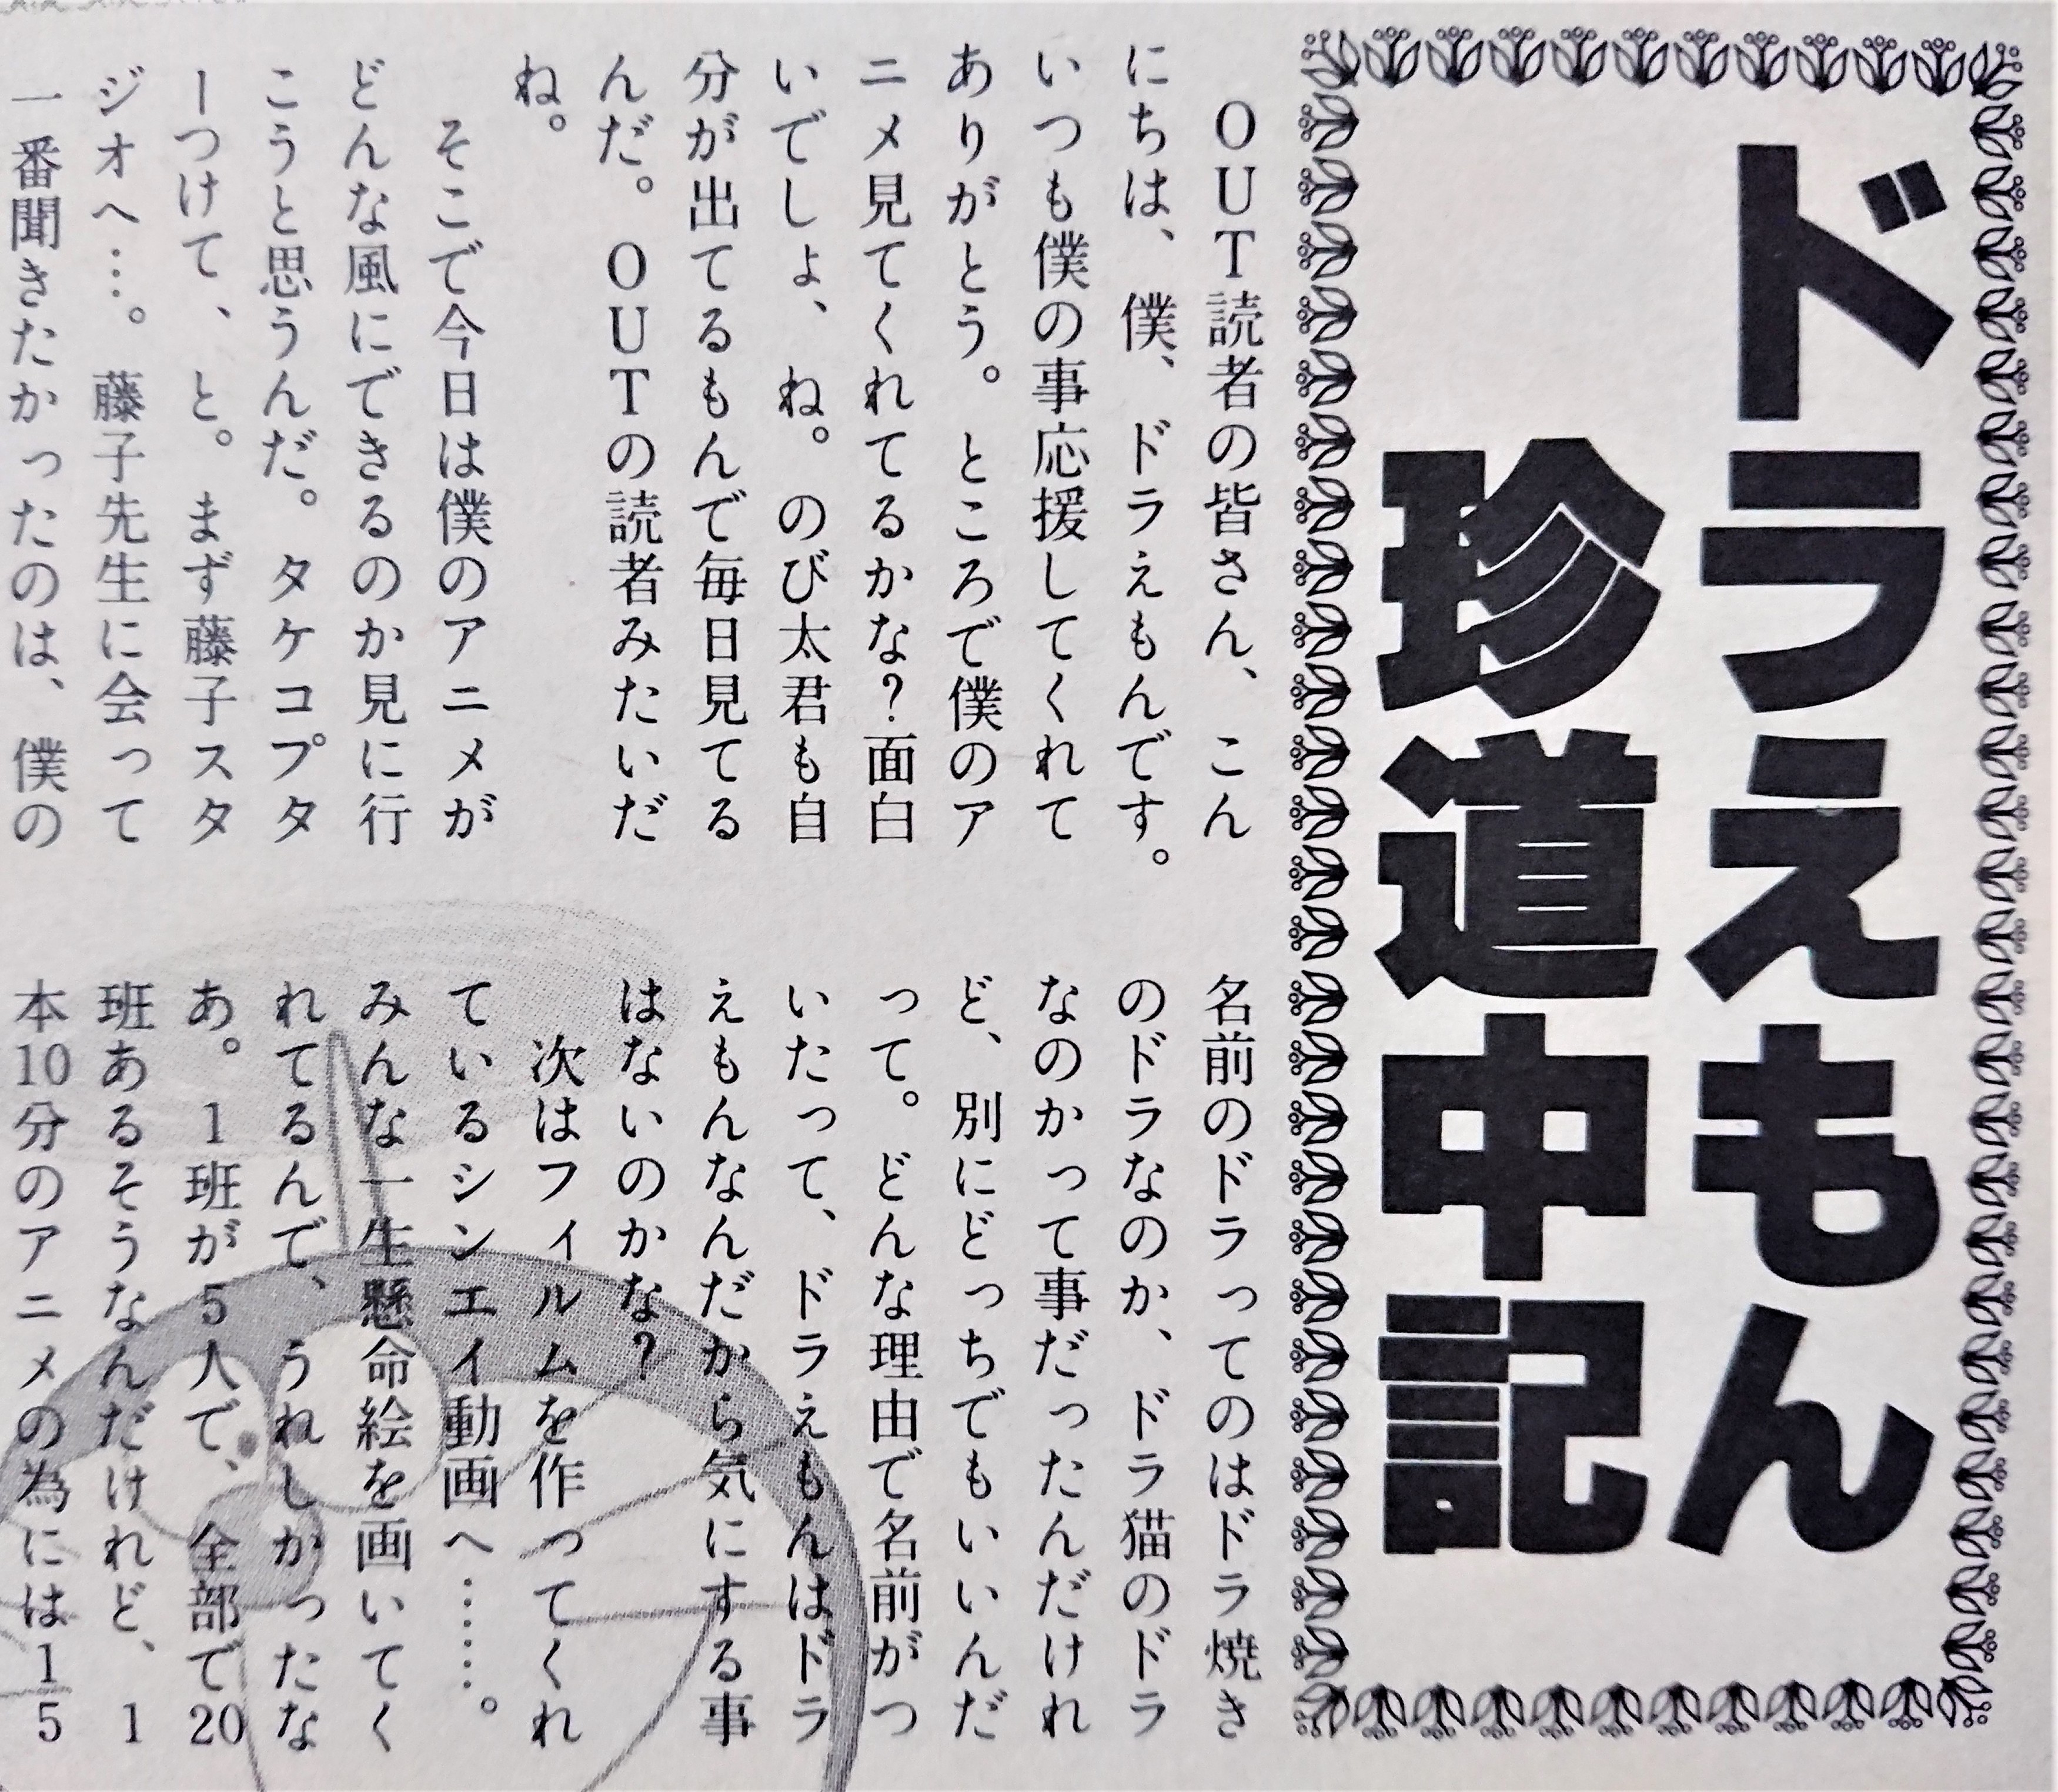 ドラえもん
珍道中記
OUT読者の皆さん、こん
にちは、僕、ドラえもんです。
いつも僕の事応援してくれて
ありがとう。ところで僕のア
ニメ見てくれてるかな?面白
いでしょ、ね。のび太君も自
分が出てるもんで毎日見てる
んだ。OUTの読者みたいだ
ね。
そこで今日は僕のアニメが
どんな風にできるのか見に行
こうと思うんだ。タケコプタ
ーつけて、と。まず藤子スタ
ジオへ…。藤子先生に会って
一番聞きたかったのは、僕の
名前のドラってのはドラ焼き
のドラなのか、ドラ猫のドラ
なのかって事だったんだけれ
ど、別にどっちでもいいんだ
って。どんな理由で名前がつ
いたって、ドラえもんはドラ
えもんなんだから気にする事
はないのかな?
次はフィルムを作ってくれ
ているシンエイ動画へ……。
みんな一生懸命絵を画いてく
れてるんで、うれしかったな
あ。1班が5人で、全部で20
班あるそうなんだけれど、1
本10分のアニメの為には15